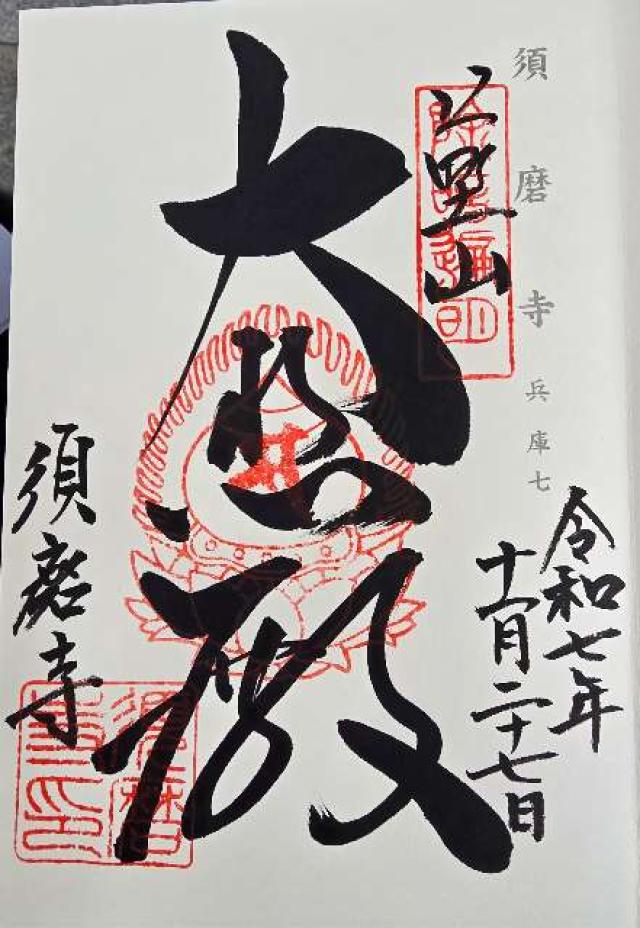 須磨寺 兵庫七
上野山
除暗遍明
大悲殿
令和七年
十一月二十七日
須磨寺
須磨寺印